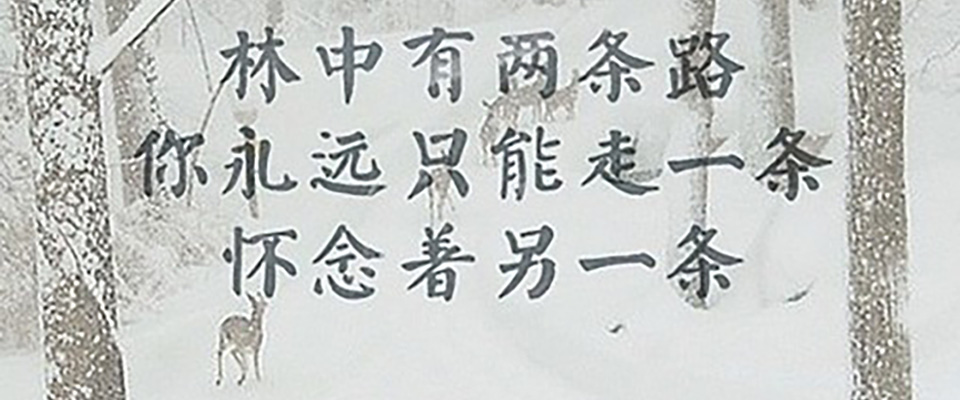 林中有两条路
你永远只能走一条
怀念着另一条